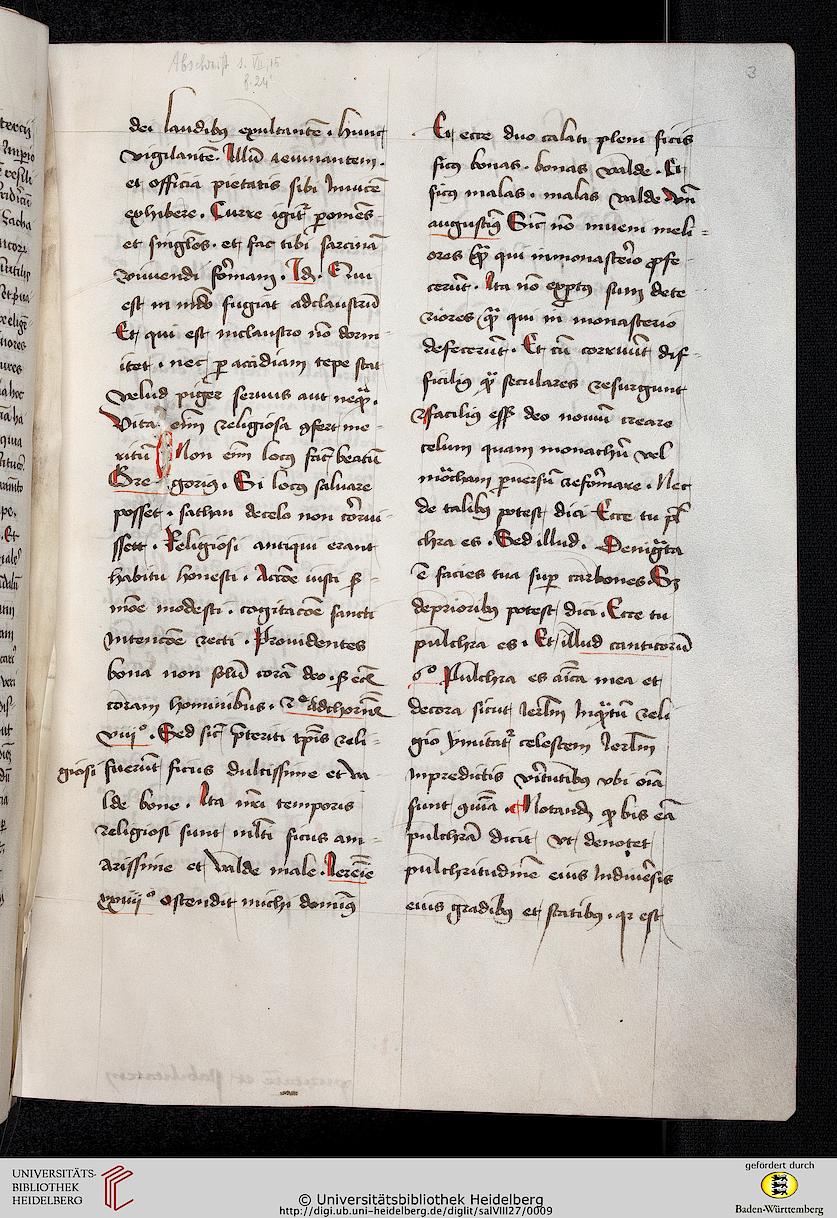 Abschrift s. VII, 15
f. 24'
3
dei laudibꝫ exultantē · hunc
vigilantē · Illū ieiunantem ·
et officia pietatis sibi Inuicē
exhibere · Curre igit᷑ ꝑ omēs
et singlōs · et fac tibi sarcinā
viuendi formam · Id · Qui
est in mūdo fugiat adclaustrū
Et qui est inclaustro nō dorm
itet · nec ꝑ accidiam tepe scat
velud piger seruus aut neqͣꝫ ·
Vita enim religiosa ꝯfert me
ritū Non enī locꝰ facit beatū
Gregoriꝰ · Si locꝰ saluare
posset · sathan decelo non corrui
sset · Religiosi antiqui erant
habitu honesti · Actōe iusti ser
mōe modesti · cogitacōe sancti
Intencōe recti · Prouidentes
bona non solū corā deo · sꝫ eciā
coram hominibus ·
viii° · Sed sic p̄teriti tp̄is reli
giosi fuerūt ficus dulcissime et va
lde bone · Ita nr̄i temporis
religiosi sunt multi ficus am
arissime et valde male · Ieremie
xxiiii° ostendit michi dominꝰ
Et ecce duo calati pleni ficis
ficꝰ bonas · bonas valde · Et
ficꝰ malas · malas valde Vn̄
augustinꝰ Sic nō inueni meli
ores qͣꝫ qui inmonasterio ꝓfe
cerūt · Ita nō expertꝰ sum dete
riores qͣꝫ qui in monasterio
defecerūt · Et cū corruūt dif
ficiliꝰ qͣꝫ seculares resurgunt
facilius esset deo nouum creare
celum quam monachū vel
mōcham peruersū reformare · Nec
de talibꝫ potest dici Ecce tu pul
chra es · Sed illud · Denigrata
ē facies tua super carbones · Sꝫ
deprioribus potest dici · Ecce tu
pulchra es · Et illud canticorū
6° Pulchra es amica mea et
decora sicut Ierlm̄ Inqͣtū reli
gio ymitat᷑ celestem Ierlm̄
Inpredictis virtutibus vbi oīa
sunt · Notandū ꝙ bis eā
pulchrā dicit vt denotet
pulchritudinē eius Indiuersis
eius gradibꝫ et statibꝫ · qr est
UNIVERSITÄTS-
BIBLIOTHEK
HEIDELBERG
© Universitätsbibliothek Heidelberg
http://digi.ub.uni-heidelberg.de/diglit/salVIII27/0009
gefördert durch
Baden-Württemberg